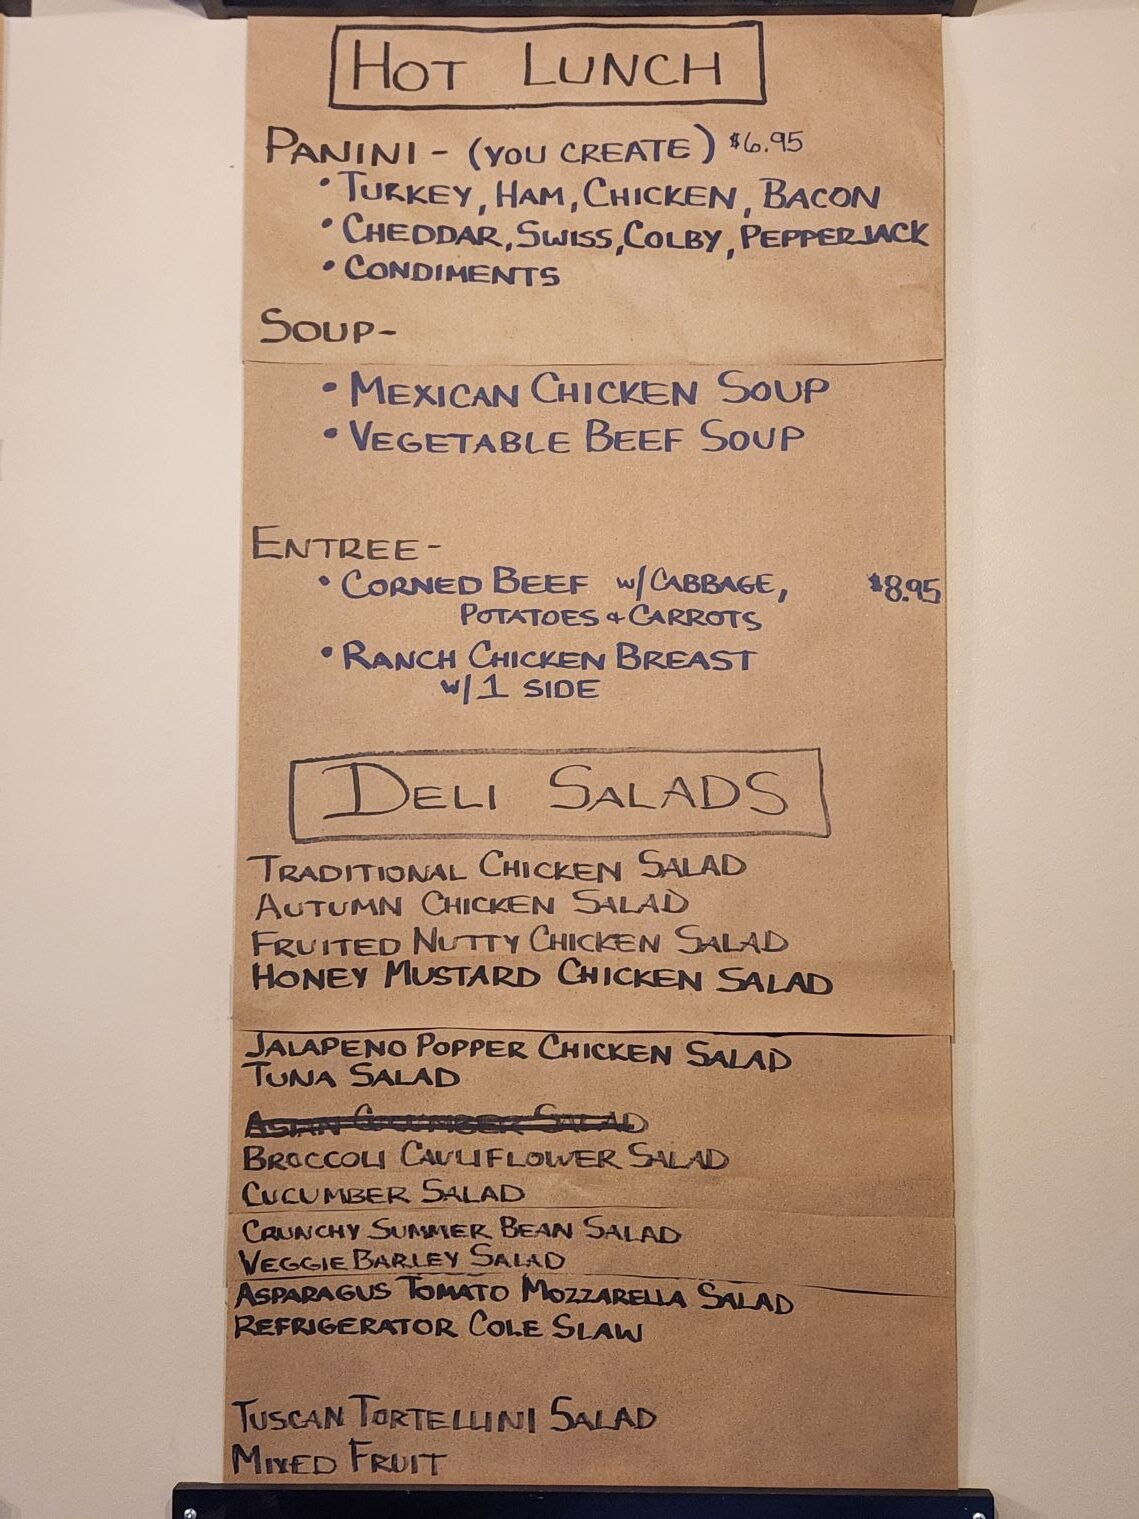 HOT LUNCH
PANINI - (YOU CREATE) $6.95
• TURKEY, HAM, CHICKEN, BACON
• CHEDDAR, SWISS, COLBY, PEPPERJACK
• CONDIMENTS
SOUP-
• MEXICAN CHICKEN SOUP
• VEGETABLE BEEF SOUP
ENTREE-
• CORNED BEEF w/CABBAGE, $8.95
POTATOES & CARROTS
• RANCH CHICKEN BREAST
w/1 SIDE
DELI SALADS
TRADITIONAL CHICKEN SALAD
AUTUMN CHICKEN SALAD
FRUITED NUTTY CHICKEN SALAD
HONEY MUSTARD CHICKEN SALAD
JALAPENO POPPER CHICKEN SALAD
TUNA SALAD
ASIAN CUCUMBER SALAD
BROCCOLI CAULIFLOWER SALAD
CUCUMBER SALAD
CRUNCHY SUMMER BEAN SALAD
VEGGIE BARLEY SALAD
ASPARAGUS TOMATO MOZZARELLA SALAD
REFRIGERATOR COLE SLAW
TUSCAN TORTELLINI SALAD
MIXED FRUIT